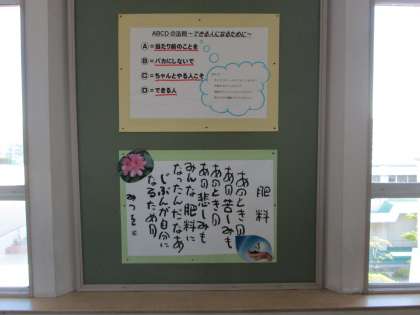 ABCDの法則～できる人になるために～
A＝当たり前のことを
B＝バカにしないで
C＝ちゃんとやる人こそ
D＝できる人
肥料
あのときの
あの苦しみも
あのときの
あの悲しみも
みんな肥料に
なったんだなあ
じぶんが自分に
なるための
みつを